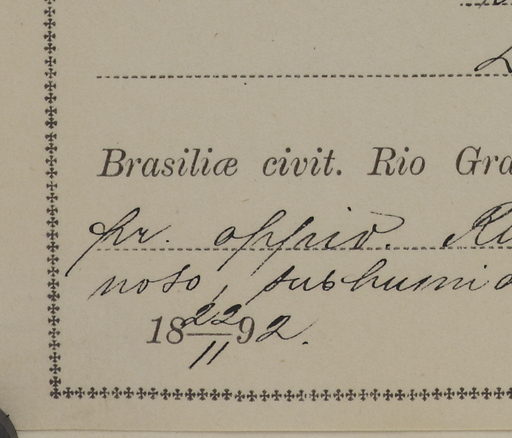 Brasiliæ civit. Rio Gra
pr. oppid. Ri
noso, subhumid
18 22/11 92.